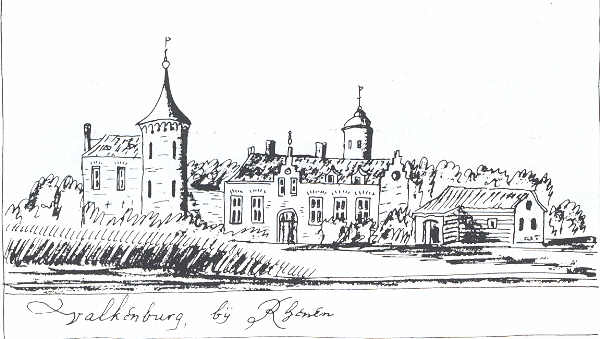 valkenburg, bÿ Rhenen